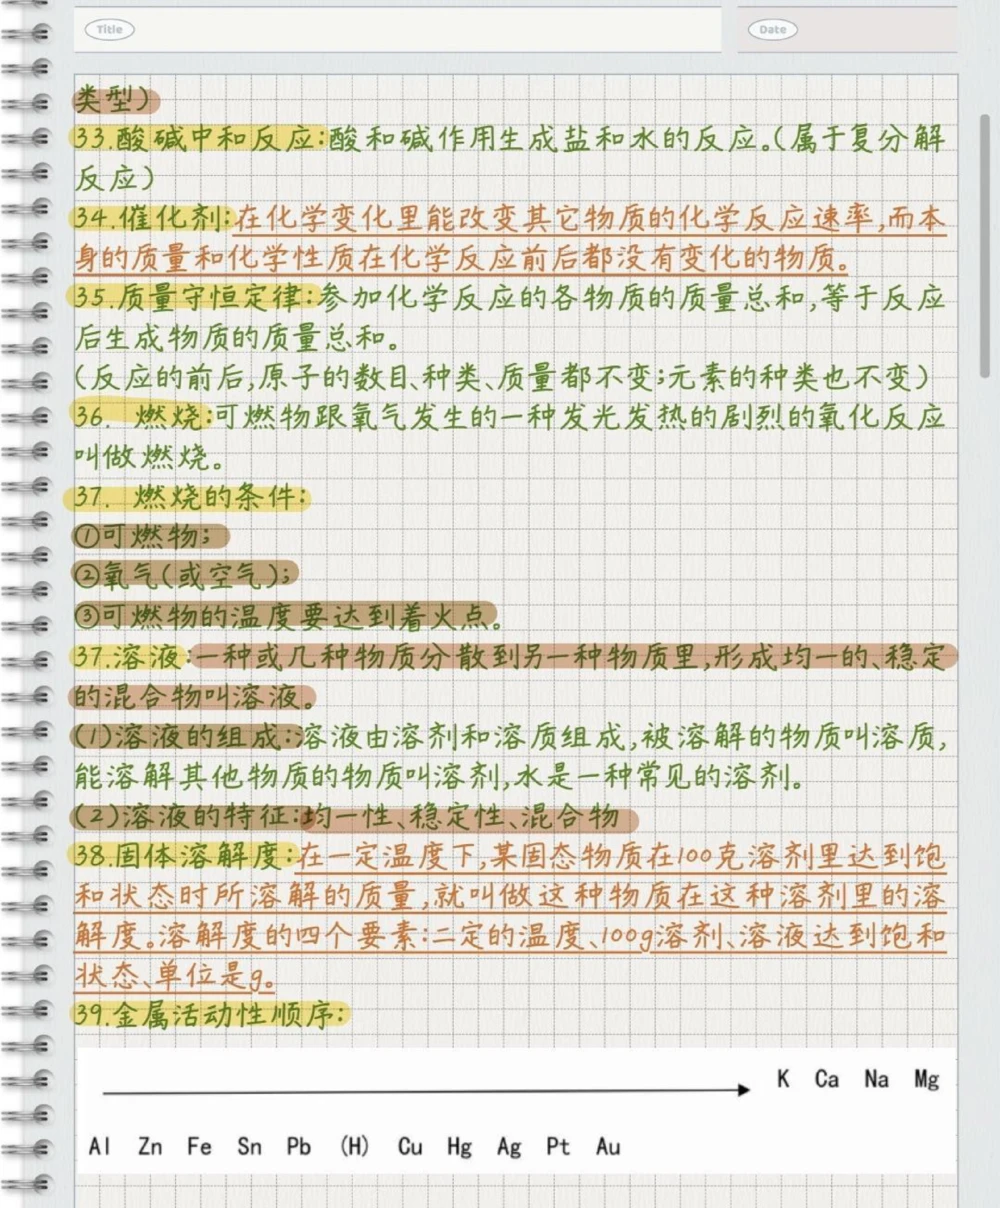 Title
Date
类型）
33.酸碱中和反应:酸和碱作用生成盐和水的反应。(属于复分解
反应）
34.催化剂:在化学变化里能改变其它物质的化学反应速率,而本
身的质量和化学性质在化学反应前后都没有变化的物质。
35.质量守恒定律:参加化学反应的各物质的质量总和,等于反应
后生成物质的质量总和。
(反应的前后,原子的数目、种类、质量都不变;元素的种类也不变)
36. 燃烧:可燃物跟氧气发生的一种发光发热的剧烈的氧化反应
叫做燃烧。
37. 燃烧的条件:
①可燃物;
②氧气(或空气);
③可燃物的温度要达到着火点。
37.溶液:一种或几种物质分散到另一种物质里,形成均一的、稳定
的混合物叫溶液。
(1)溶液的组成:溶液由溶剂和溶质组成,被溶解的物质叫溶质,
能溶解其他物质的物质叫溶剂,水是一种常见的溶剂。
(2)溶液的特征:均一性、稳定性、混合物
38.固体溶解度:在一定温度下,某固态物质在100克溶剂里达到饱
和状态时所溶解的质量,就叫做这种物质在这种溶剂里的溶
解度。溶解度的四个要素:二定的温度、100g溶剂、溶液达到饱和
状态、单位是g。
39.金属活动性顺序:
K Ca Na Mg
Al Zn Fe Sn Pb (H) Cu Hg Ag Pt Au